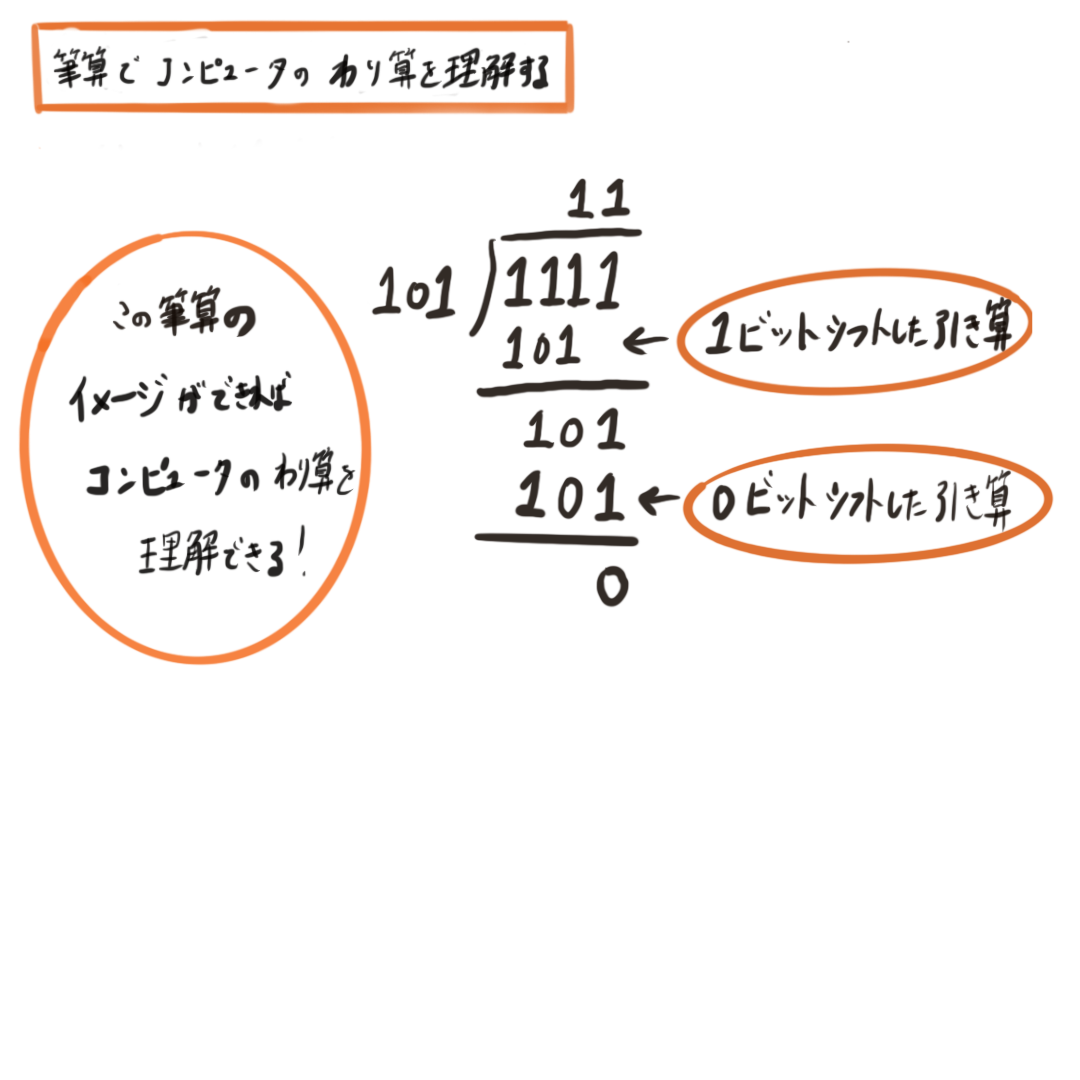 筆算でコンピュータのわり算を理解する
11
101)1111
101 ← 1ビットシフトした引き算
101
101 ← 0ビットシフトした引き算
0
この筆算の
イメージができれば
コンピュータのわり算を
理解できる!